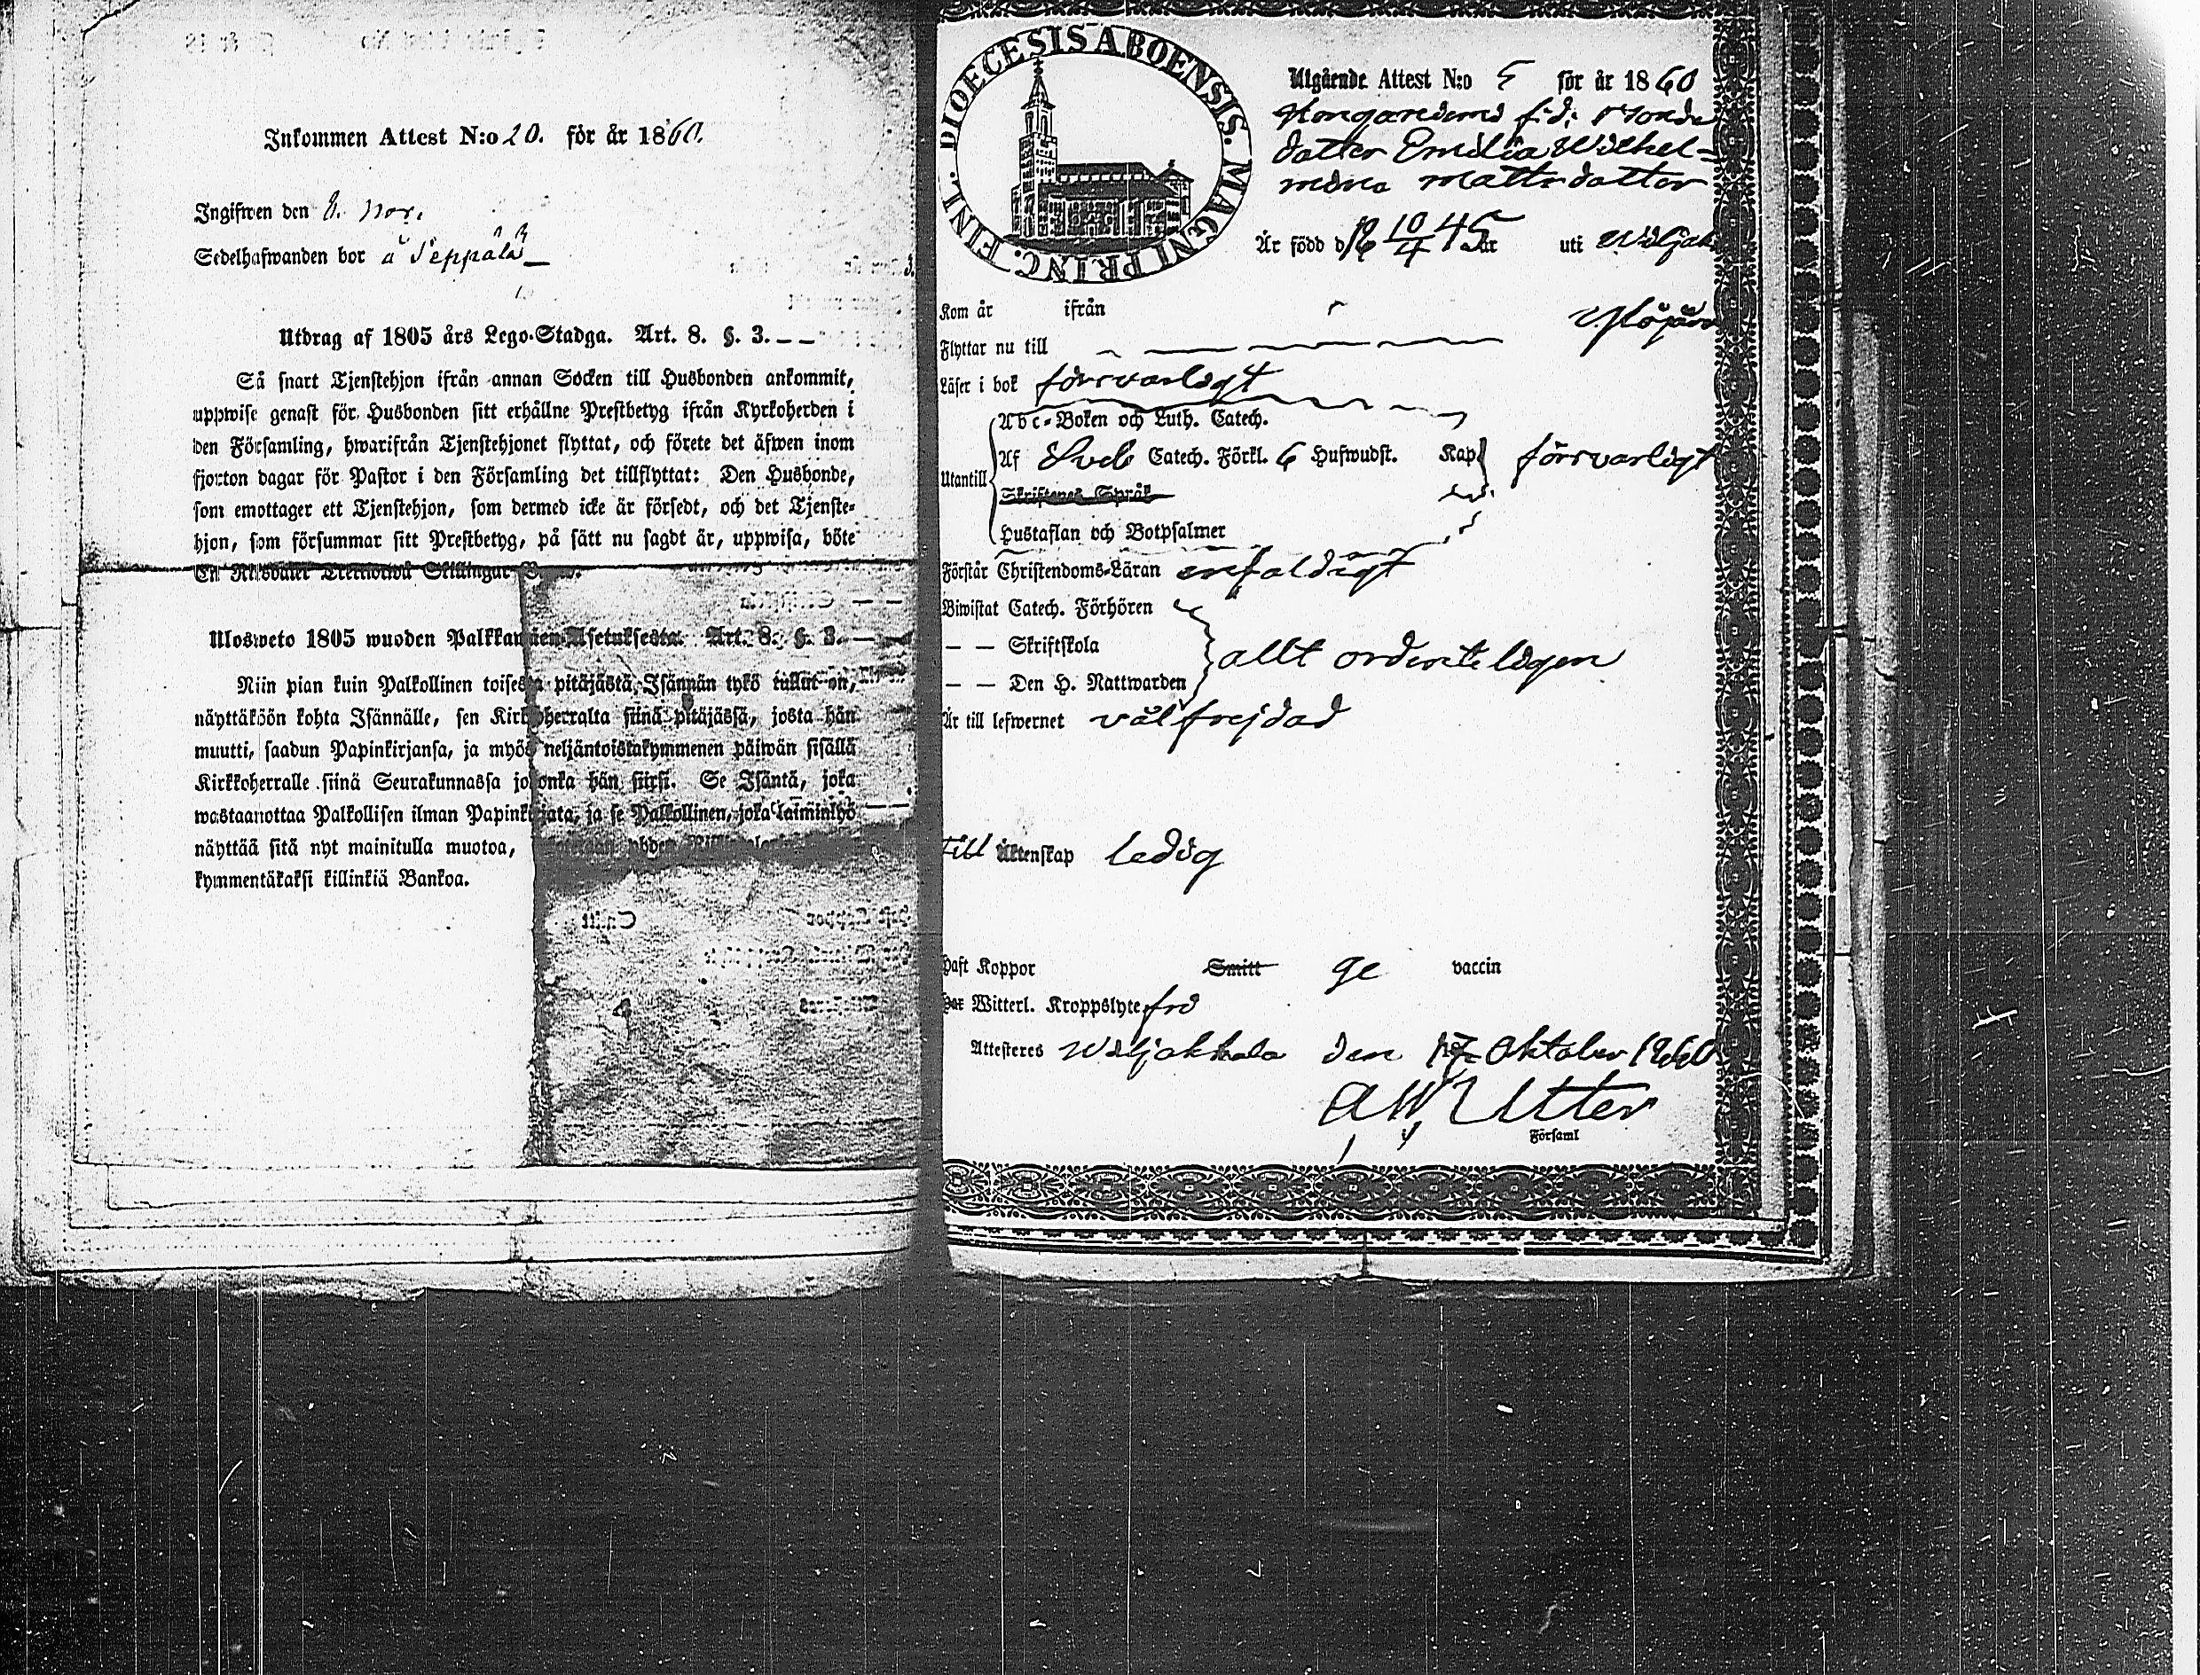 Inkommen Attest N:o 20. för år 1860.
Ingifwen den 8. Nov.
Sedelhafwanden bor å Seppälä
Utdrag af 1805 års Lego-Stadga. Art. 8. §. 3.
Så snart Tjenstehjon ifrån annan Socken till Husbonden ankommit,
uppwise genast för Husbonden sitt erhållne Prestbetyg ifrån Kyrkoherden i
den Församling, hwarifrån Tjenstehjonet flyttat, och förete det äfwen inom
fjorton dagar för Pastor i den Församling det tillflyttat: Den Husbonde,
som emottager ett Tjenstehjon, som dermed icke är försedt, och det Tjenste-
hjon, som försummar sitt Prestbetyg, på sätt nu sagdt är, uppwisa, böte
En Riksdaler Skillingar
Ulosweto 1805 wuoden Palkkausten Asetuksesta. Art. 8. §. 3.
Niin pian kuin Palkollinen toisesta pitäjästä Isännän tykö tullut on,
näyttäköön kohta Isännälle, sen Kirkkoherralta siinä pitäjässä, josta hän
muutti, saadun Papinkirjansa, ja myös neljäntoistakymmenen päiwän sisällä
Kirkkoherralle siinä Seurakunnassa johonka hän siirsi. Se Isäntä, joka
wastaanottaa Palkollisen ilman Papinkirjata, ja se Palkollinen, joka laiminlyö
näyttää sitä nyt mainitulla muotoa,
kymmentäkaksi killinkiä Bankoa.
DIOECESIS ABOENSIS. MAGNI PRINC. FINL.
Utgående Attest N:o 5 för år 1860
f.d. Bonde
dotter Emilia Wilhel-
mina Mattsdotter
Är född d. 16 10/4 45 år uti Wiljak
Kom år ifrån
Flyttar nu till Ylöjärv
Läser i bok försvarligt
Abc-Boken och Luth. Catech.
Utantill Af Sveb Catech. Förkl. 6 Hufwudst. Kap. försvarligt
Skriftenes Språk
Hustaflan och Botpsalmer
Förstår Christendoms-Läran enfaldigt
Biwistat Catech. Förhören
— — Skriftskola allt ordenteligen
— — Den H. Nattwarden
Är till lefwernet välfrejdad
Till Äktenskap ledig
Haft Koppor Smitt ge vaccin
Har Witterl. Kroppslyte fri
Attesteres Wiljakkala den 17 Oktober 1860
A W Utter
Församl